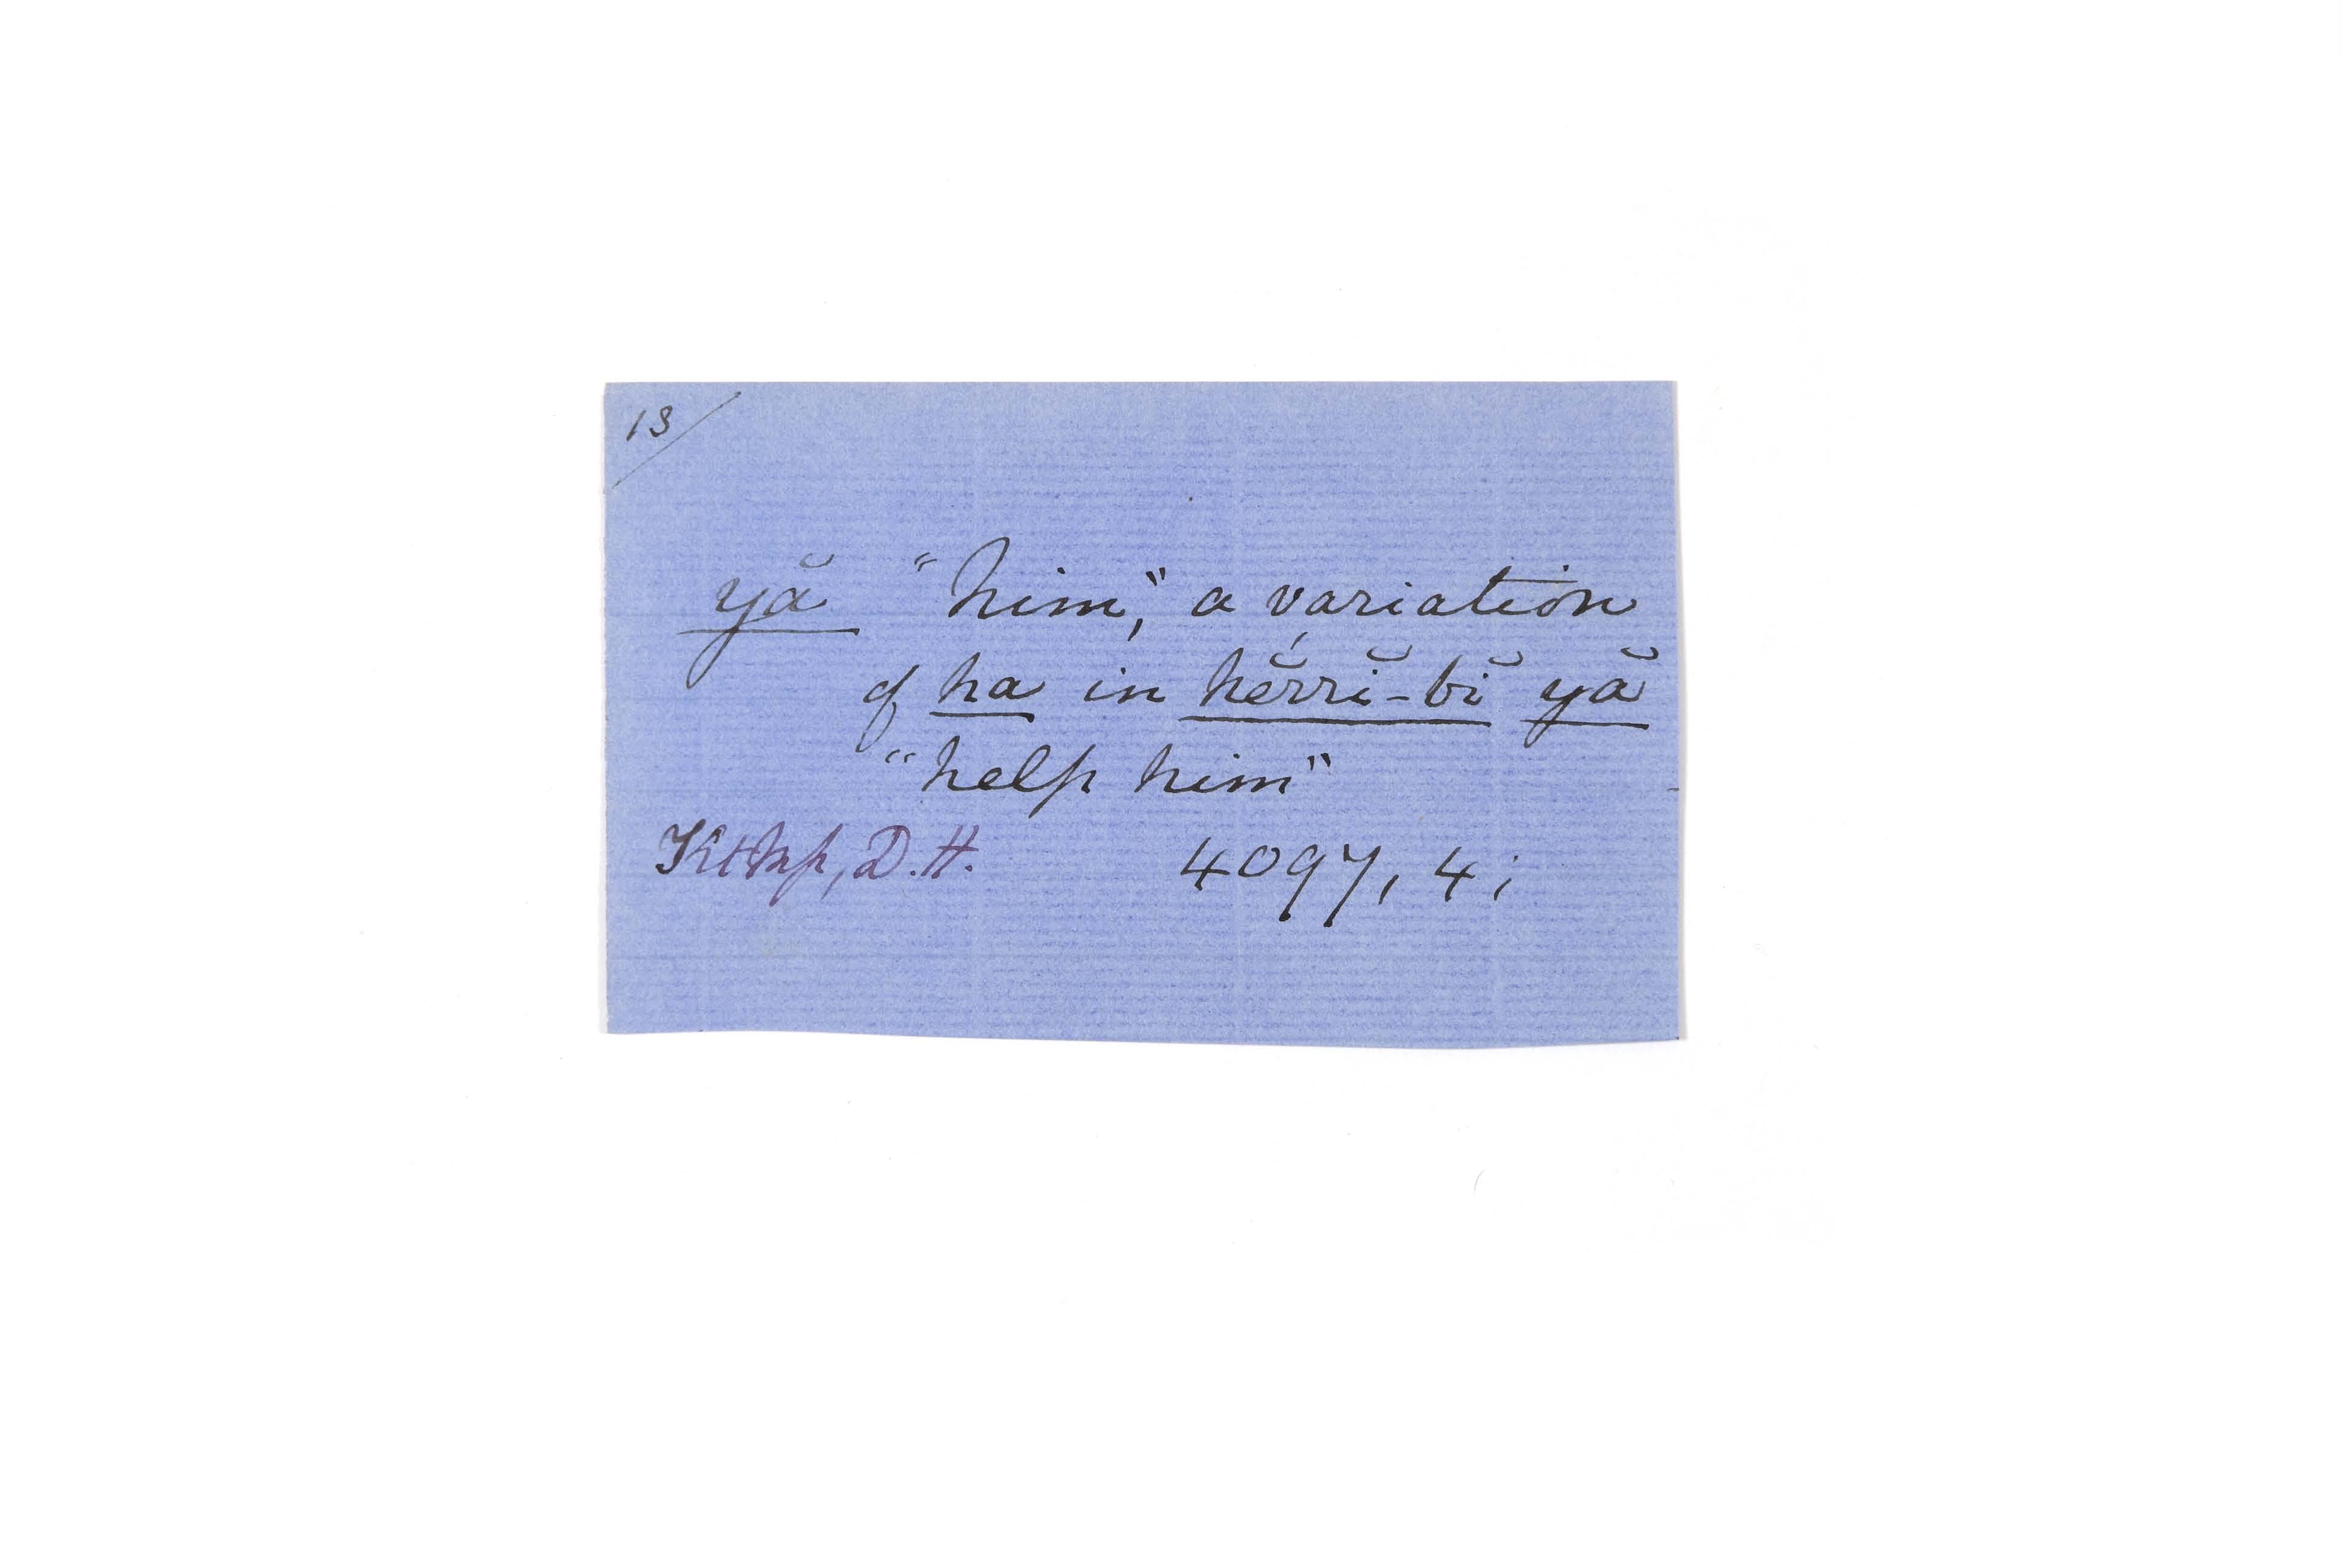 13/
yă "him", a variation
of ha in hĕrrĭ-bĭ yă
"help him"
D.H. 4097, 4;